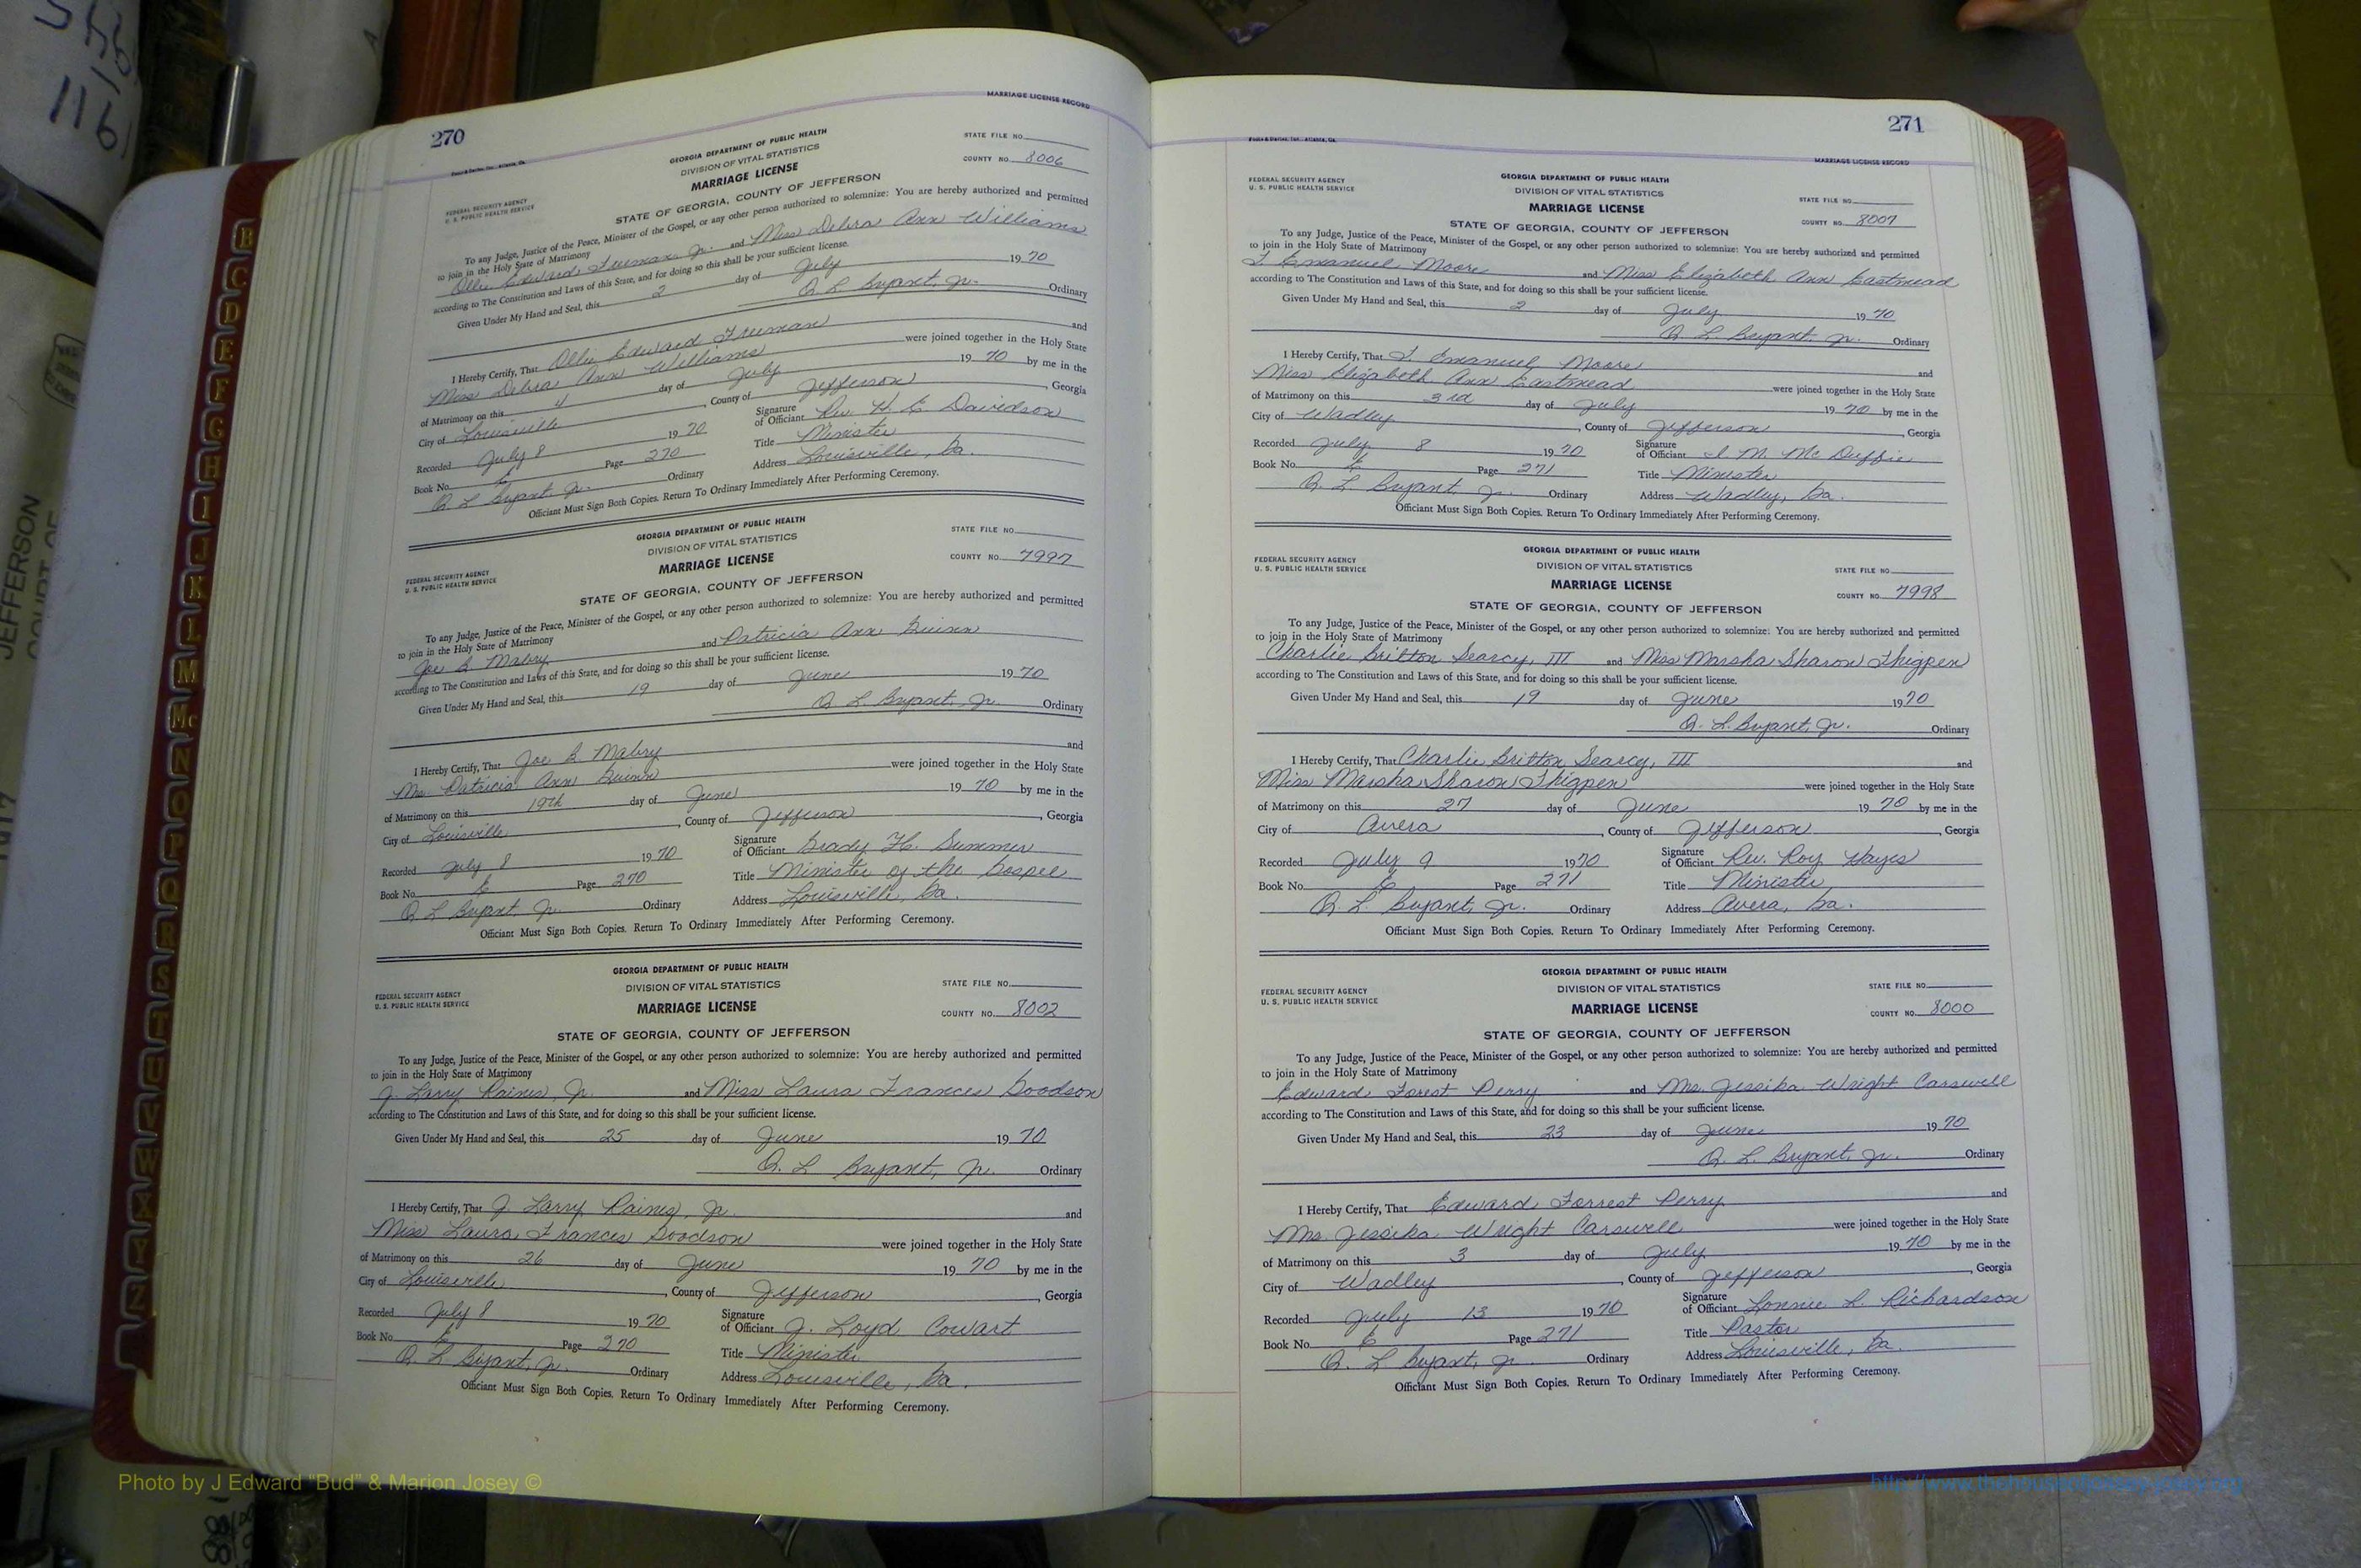 270
MARRIAGE LICENSE RECORD
GEORGIA DEPARTMENT OF PUBLIC HEALTH
DIVISION OF VITAL STATISTICS
MARRIAGE LICENSE
STATE OF GEORGIA, COUNTY OF JEFFERSON
FEDERAL SECURITY AGENCY
U. S. PUBLIC HEALTH SERVICE
STATE FILE NO.
COUNTY NO. 8006
To any Judge, Justice of the Peace, Minister of the Gospel, or any other person authorized to solemnize: You are hereby authorized and permitted
to join in the Holy State of Matrimony
Ollie Edward Freeman Jr. and Miss Debra Ann Williams
according to The Constitution and Laws of this State, and for doing so this shall be your sufficient license.
Given Under My Hand and Seal, this 2 day of July 1970
Q L Bryant, Jr. Ordinary
I Hereby Certify, That Ollie Edward Freeman and
Miss Debra Ann Williams were joined together in the Holy State
of Matrimony on this 4 day of July 1970 by me in the
City of Louisville, County of Jefferson, Georgia
Recorded July 8 1970 Signature of Officiant Rev H E Davidson
Book No. E Page 270 Title Minister
Q L Bryant, Jr. Ordinary Address Louisville, Ga.
Officiant Must Sign Both Copies. Return To Ordinary Immediately After Performing Ceremony.
GEORGIA DEPARTMENT OF PUBLIC HEALTH
DIVISION OF VITAL STATISTICS
MARRIAGE LICENSE
STATE OF GEORGIA, COUNTY OF JEFFERSON
FEDERAL SECURITY AGENCY
U. S. PUBLIC HEALTH SERVICE
STATE FILE NO.
COUNTY NO. 7997
To any Judge, Justice of the Peace, Minister of the Gospel, or any other person authorized to solemnize: You are hereby authorized and permitted
to join in the Holy State of Matrimony
Joe B. Mabry and Patricia Ann Guinn
according to The Constitution and Laws of this State, and for doing so this shall be your sufficient license.
Given Under My Hand and Seal, this 19 day of June 1970
Q L Bryant, Jr. Ordinary
I Hereby Certify, That Joe B Mabry and
Mrs. Patricia Ann Guinn were joined together in the Holy State
of Matrimony on this 19th day of June 1970 by me in the
City of Louisville, County of Jefferson, Georgia
Recorded July 8 1970 Signature of Officiant Grady H. Summer
Book No. E Page 270 Title Minister of the Gospel
Q L Bryant, Jr. Ordinary Address Louisville, Ga.
Officiant Must Sign Both Copies. Return To Ordinary Immediately After Performing Ceremony.
GEORGIA DEPARTMENT OF PUBLIC HEALTH
DIVISION OF VITAL STATISTICS
MARRIAGE LICENSE
STATE OF GEORGIA, COUNTY OF JEFFERSON
FEDERAL SECURITY AGENCY
U. S. PUBLIC HEALTH SERVICE
STATE FILE NO.
COUNTY NO. 8002
To any Judge, Justice of the Peace, Minister of the Gospel, or any other person authorized to solemnize: You are hereby authorized and permitted
to join in the Holy State of Matrimony
J. Larry Raines, Jr. and Miss Laura Frances Goodson
according to The Constitution and Laws of this State, and for doing so this shall be your sufficient license.
Given Under My Hand and Seal, this 25 day of June 1970
Q. L Bryant, Jr. Ordinary
I Hereby Certify, That J Larry Raines, Jr. and
Miss Laura Frances Goodson were joined together in the Holy State
of Matrimony on this 26 day of June 1970 by me in the
City of Louisville, County of Jefferson, Georgia
Recorded July 8 1970 Signature of Officiant J. Loyd Cowart
Book No. E Page 270 Title Minister
Q L Bryant, Jr. Ordinary Address Louisville, Ga.
Officiant Must Sign Both Copies. Return To Ordinary Immediately After Performing Ceremony.
271
MARRIAGE LICENSE RECORD
GEORGIA DEPARTMENT OF PUBLIC HEALTH
DIVISION OF VITAL STATISTICS
MARRIAGE LICENSE
STATE OF GEORGIA, COUNTY OF JEFFERSON
FEDERAL SECURITY AGENCY
U. S. PUBLIC HEALTH SERVICE
STATE FILE NO.
COUNTY NO. 8007
To any Judge, Justice of the Peace, Minister of the Gospel, or any other person authorized to solemnize: You are hereby authorized and permitted
to join in the Holy State of Matrimony
Emanuel Moore and Miss Elizabeth Ann Eastmead
according to The Constitution and Laws of this State, and for doing so this shall be your sufficient license.
Given Under My Hand and Seal, this 2 day of July 1970
Q L Bryant, Jr. Ordinary
I Hereby Certify, That Emanuel Moore and
Miss Elizabeth Ann Eastmead were joined together in the Holy State
of Matrimony on this 3rd day of July 1970 by me in the
City of Wadley, County of Jefferson, Georgia
Recorded July 8 1970 Signature of Officiant M. McDuffie
Book No. E Page 271 Title Minister
Q. L Bryant Jr. Ordinary Address Wadley, Ga.
Officiant Must Sign Both Copies. Return To Ordinary Immediately After Performing Ceremony.
GEORGIA DEPARTMENT OF PUBLIC HEALTH
DIVISION OF VITAL STATISTICS
MARRIAGE LICENSE
STATE OF GEORGIA, COUNTY OF JEFFERSON
FEDERAL SECURITY AGENCY
U. S. PUBLIC HEALTH SERVICE
STATE FILE NO.
COUNTY NO. 7998
To any Judge, Justice of the Peace, Minister of the Gospel, or any other person authorized to solemnize: You are hereby authorized and permitted
to join in the Holy State of Matrimony
Charlie Britton Searcy, III and Miss Marsha Sharon Thigpen
according to The Constitution and Laws of this State, and for doing so this shall be your sufficient license.
Given Under My Hand and Seal, this 19 day of June 1970
Q. L. Bryant, Jr. Ordinary
I Hereby Certify, That Charlie Britton Searcy, III and
Miss Marsha Sharon Thigpen were joined together in the Holy State
of Matrimony on this 27 day of June 1970 by me in the
City of Avera, County of Jefferson, Georgia
Recorded July 9 1970 Signature of Officiant Rev. Roy Hayes
Book No. E Page 271 Title Minister
Q. L. Bryant, Jr. Ordinary Address Avera, Ga.
Officiant Must Sign Both Copies. Return To Ordinary Immediately After Performing Ceremony.
GEORGIA DEPARTMENT OF PUBLIC HEALTH
DIVISION OF VITAL STATISTICS
MARRIAGE LICENSE
STATE OF GEORGIA, COUNTY OF JEFFERSON
FEDERAL SECURITY AGENCY
U. S. PUBLIC HEALTH SERVICE
STATE FILE NO.
COUNTY NO. 8000
To any Judge, Justice of the Peace, Minister of the Gospel, or any other person authorized to solemnize: You are hereby authorized and permitted
to join in the Holy State of Matrimony
Edward Forest Perry and Mrs. Jessika Wright Carswell
according to The Constitution and Laws of this State, and for doing so this shall be your sufficient license.
Given Under My Hand and Seal, this 23 day of June 1970
Q. L. Bryant, Jr. Ordinary
I Hereby Certify, That Edward Forrest Perry and
Mrs. Jessika Wright Carswell were joined together in the Holy State
of Matrimony on this 3 day of July 1970 by me in the
City of Wadley, County of Jefferson, Georgia
Recorded July 13 1970 Signature of Officiant Lonnie L. Richardson
Book No. E Page 271 Title Pastor
Q. L Bryant, Jr. Ordinary Address Louisville, Ga.
Officiant Must Sign Both Copies. Return To Ordinary Immediately After Performing Ceremony.
B
C
D
E
F
G
H
I
J
K
L
M
Mc
N
O
P
Q
R
S
T
U
V
W
X
Y
Z
JEFFERSON
116
Photo by J Edward "Bud" & Marion Josey ©